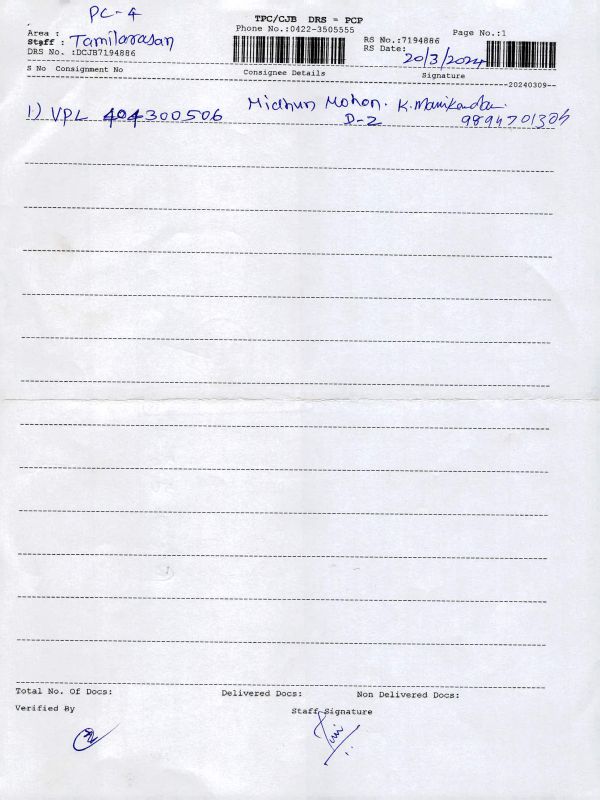 PC-4
TPC/CJB DRS = PCP
Phone No.:0422-3505555
Page No.:1
Area :
RS No.:7194886
Staff : Tamilarasan
RS Date: 20/3/2024
DRS No. :DCJB7194886
S No Consignment No Consignee Details Signature
20240309
1) VPL 404300506 Midhun Mohon. K. Manikanda
D-2 9894701305
Total No. Of Docs: Delivered Docs: Non Delivered Docs:
Verified By Staff Signature
2